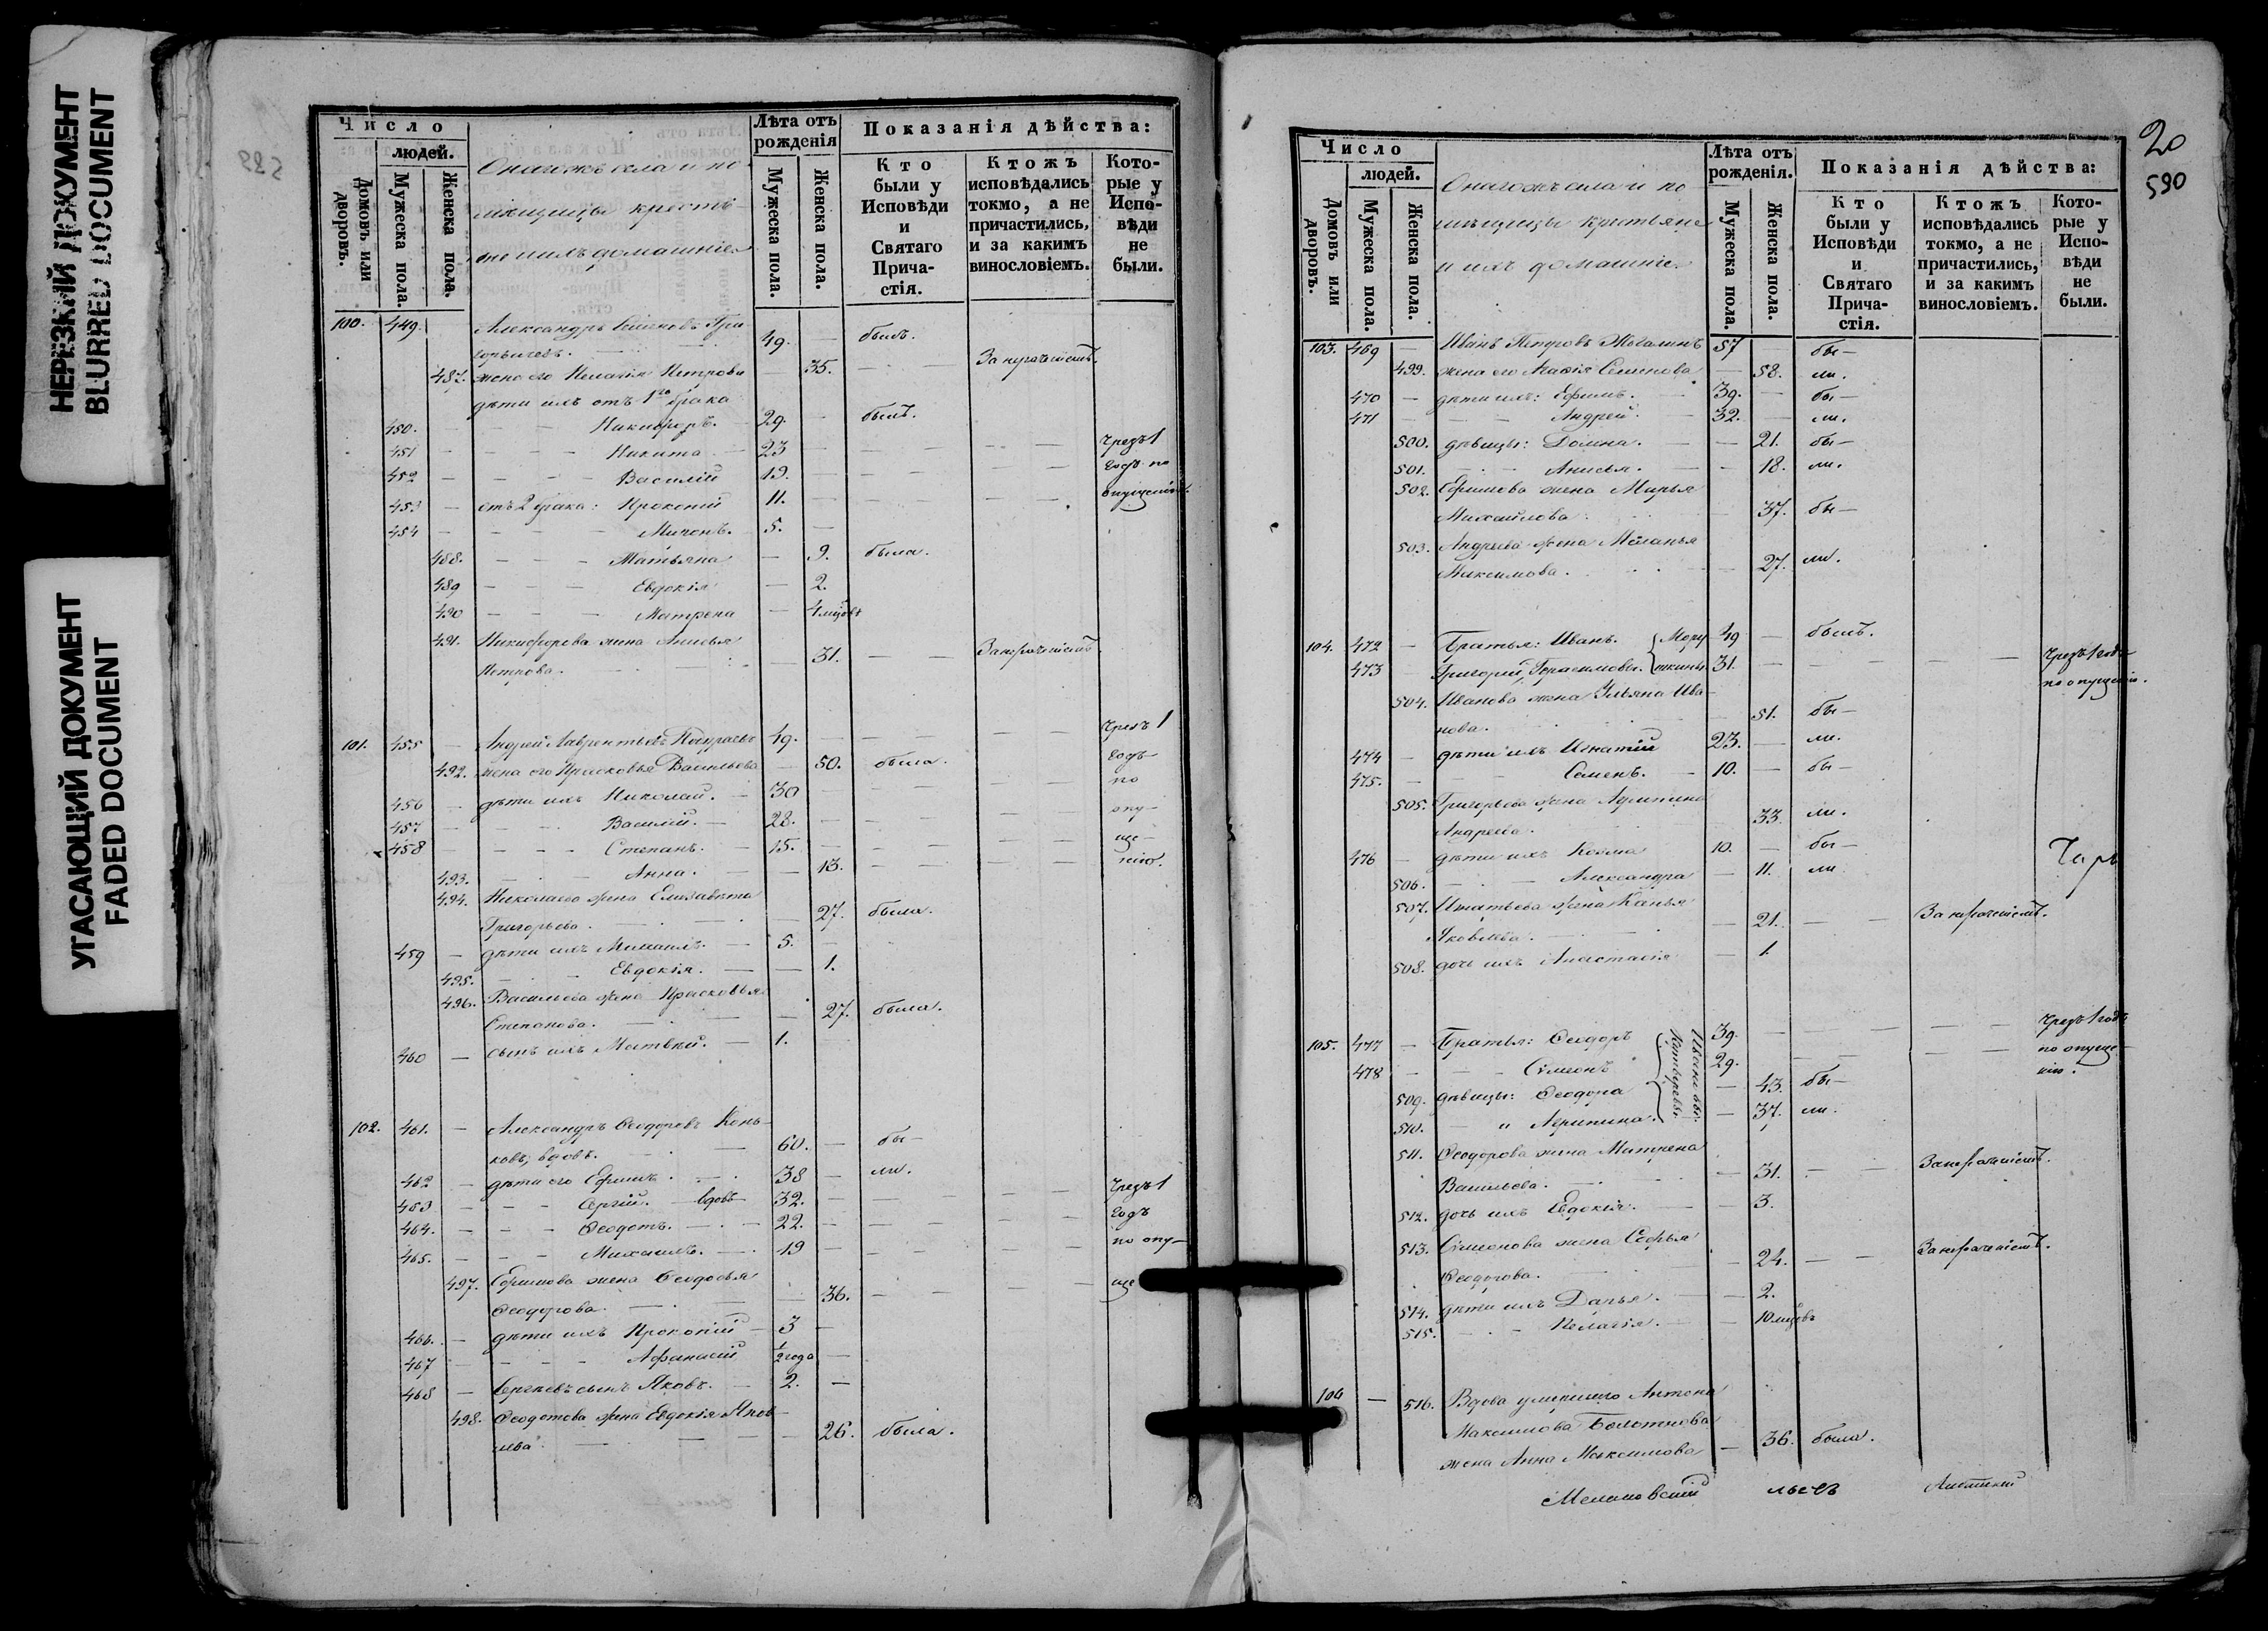 НЕРЕЗКИЙ ДОКУМЕНТ
BLURRED DOCUMENT
УГАСАЮЩИЙ ДОКУМЕНТ
FADED DOCUMENT
Число
людей.
Домовъ или дворовъ.
Мужеска пола.
Женска пола.
Онагожъ села и по-
мѣщицы крестья-
не и ихъ домашніе
Лѣта отъ рожденія
Мужеска пола.
Женска пола.
Показанія дѣйства:
Кто были у Исповѣди и Святаго Прича-стія.
Ктожъ исповѣдались токмо, а не причастились, и за какимъ винословіемъ.
Кото-рые у Испо-вѣди не были.
100. 449. Александръ Семеновъ Гри-
горьичевъ. 49. былъ.
487. жена его Пелагія Петрова 35.
дѣти ихъ отъ 1го брака
450. Никифоръ. 29. былъ.
451 Никита 23 чрезъ 1
452 Василій 19. годъ по
453 отъ 2 брака: Прокопій 11. опущенію.
454 Миронъ. 5.
488. Татьяна 9. была.
489 Евдокія 2.
490 Матрена 4 мцовъ
491. Никифорова жена Анисья
Петрова. 31.
101. 455 Андрей Лаврентьевъ 49. чрезъ 1
492. жена его Прасковья Васильева 50. была. годъ
456 дѣти ихъ Николай. 30 по
457 Василій. 28. опу-
458 Степанъ. 15. ще-
493. Анна. 13. нію.
494. Николаева жена Елисавета
Григорьева. 27. была.
459 дѣти ихъ Михаилъ. 5.
495. Евдокія. 1.
496. Васильева жена Прасковья
Степанова. 27. была.
460 сынъ ихъ Матвѣй. 1.
102. 461. Александръ Ѳеодоровъ Конь-
ковъ, вдовъ. 60. бы-
462 дѣти его Ефимъ. 38 ли.
463 Сергій. вдовъ 32. чрезъ 1
464. Ѳеодотъ. 22. годъ
465. Михаилъ. 19 по опу-
497. Ефимова жена Ѳеодосья ще
Ѳеодорова. 36.
466. дѣти ихъ Прокопій 3
467 Афанасій 1/2 года
468 Сергѣевъ сынъ Яковъ. 2.
498. Ѳеодотова жена Евдокія Яков-
лева 26. была.
20
590
Число
людей.
Домовъ или дворовъ.
Мужеска пола.
Женска пола.
Онагожъ села и по-
мѣщицы крестьяне
и ихъ домашніе
Лѣта отъ рожденія.
Мужеска пола.
Женска пола.
Показанія дѣйства:
Кто были у Исповѣди и Святаго Прича-стія.
Ктожъ исповѣдались токмо, а не причастились, и за какимъ винословіемъ.
Кото-рые у Испо-вѣди не были.
103. 469 Иванъ Петровъ 57 бы-
499. жена его Семенова 58. ли.
470 дѣти ихъ: Ефимъ. 39. бы-
471 Андрей. 32. ли.
500. дѣвицы: Домна. 21. бы-
501. Анисья. 18. ли.
502. Ефимова жена Марья
Михайлова 37. бы-
503. Андреева жена Меланья
Максимова. 27. ли.
104. 472 Братья: Иванъ. 49 былъ.
473 Григорій, Герасимовы. 31. чрезъ 1 годъ
по опущенію.
504. Иванова жена Ульяна Ива-
нова. 51. бы-
474 дѣти ихъ Игнатій 23. ли.
475. Семенъ. 10. бы-
505. Григорьева жена Агрипина
Андреева. 33. ли.
476 дѣти ихъ Косма 10. бы-
506. Александра 11. ли
507. Игнатьева жена
Яковлева. 21.
508. дочь ихъ Анастасія 1
105. 477 Братья: Ѳеодоръ 39. чрезъ 1 годъ
478 Сѵмеонъ 29. по опуще-
нію.
509. дѣвицы: Ѳеодора 43. бы-
510. и Агрипина. 37. ли.
511. Ѳеодорова жена Матрена
Васильева. 31.
512. дочь ихъ Евдокія. 3.
513. Сѵмеонова жена Софья
Ѳеодорова. 24.
514. дѣти ихъ Дарья. 2.
515. Пелагія. 10 мцовъ
106 516. Вдова умершаго Антона
Максимова Болотнова
жена Анна Максимова 36. была.